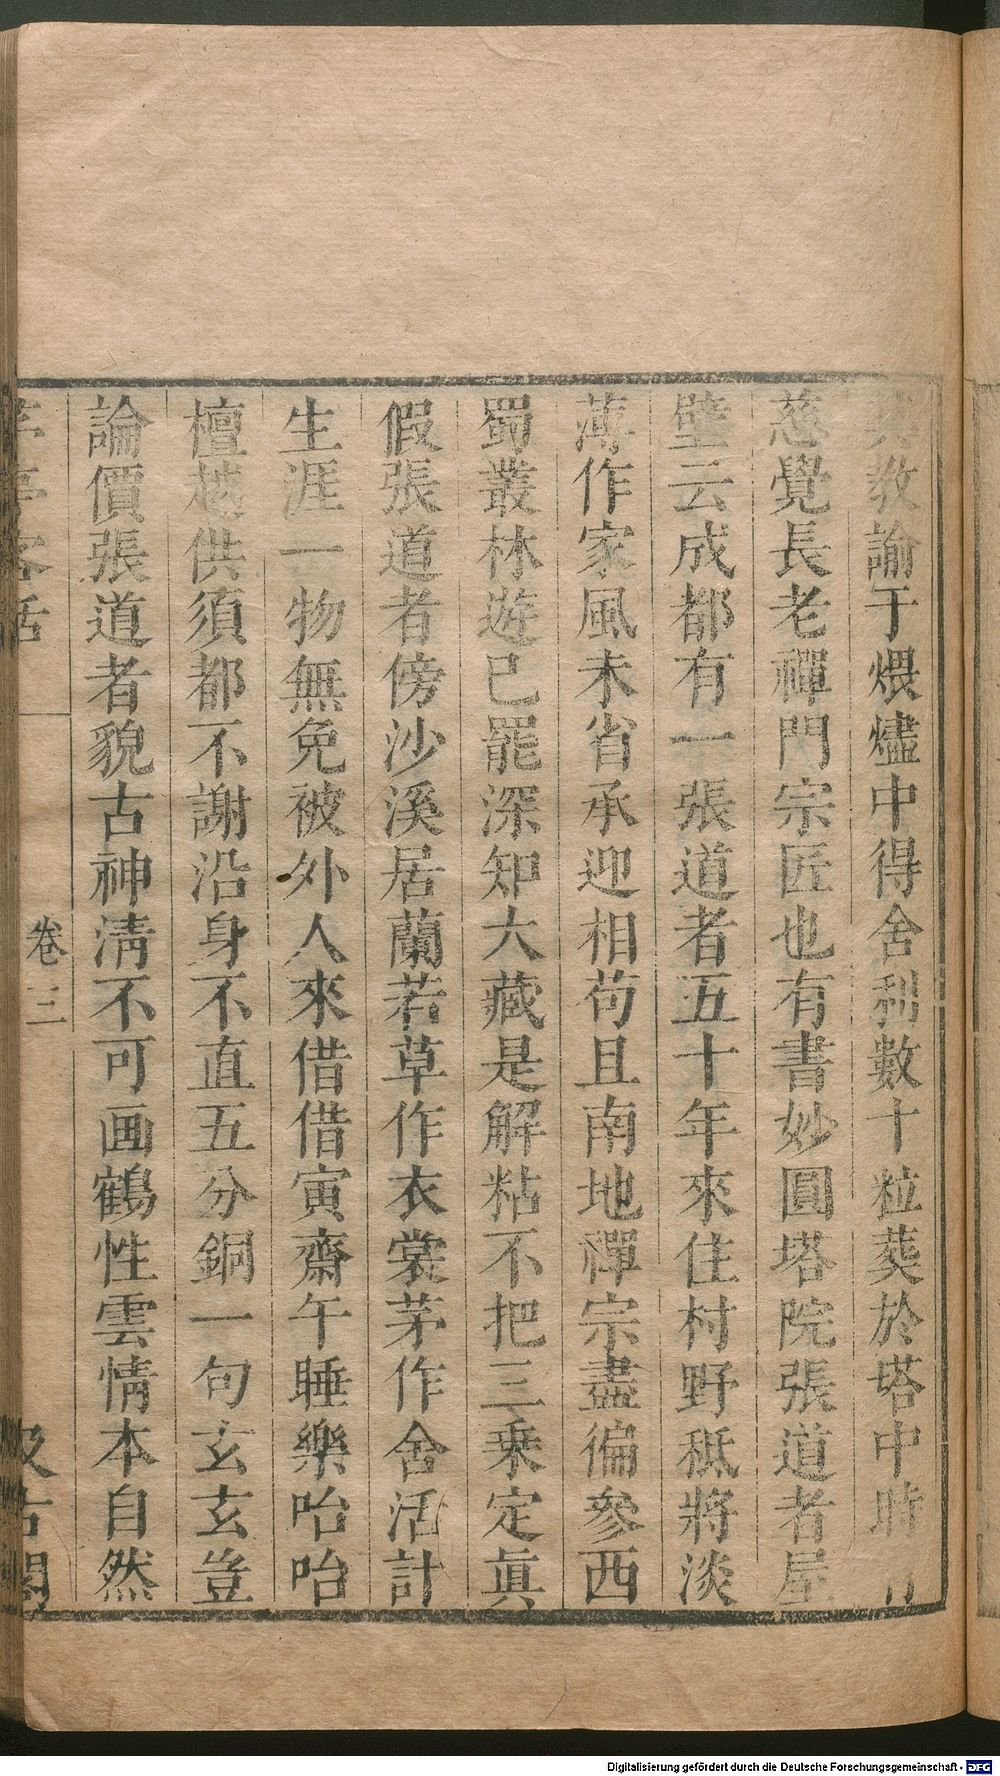 其教諭于煨燼中得舍利數十粒葬於塔中時有
慈覺長老禪門宗匠也有書妙圓塔院張道者屋
壁云成都有一張道者五十年來住村野秪將淡
薄作家風未省承迎相苟且南地禪宗盡徧參西
蜀叢林遊已罷深知大藏是解粘不把三乘定眞
假張道者傍沙溪居蘭若草作衣裳茅作舍活計
生涯一物無免被外人來借借寅齋午睡樂咍咍
檀越供須都不謝沿身不直五分銅一句玄玄豈
論價張道者貌古神淸不可画鶴性雲情本自然
茅亭客话 卷三 汲古閣
Digitalisierung gefördert durch die Deutsche Forschungsgemeinschaft - DFG